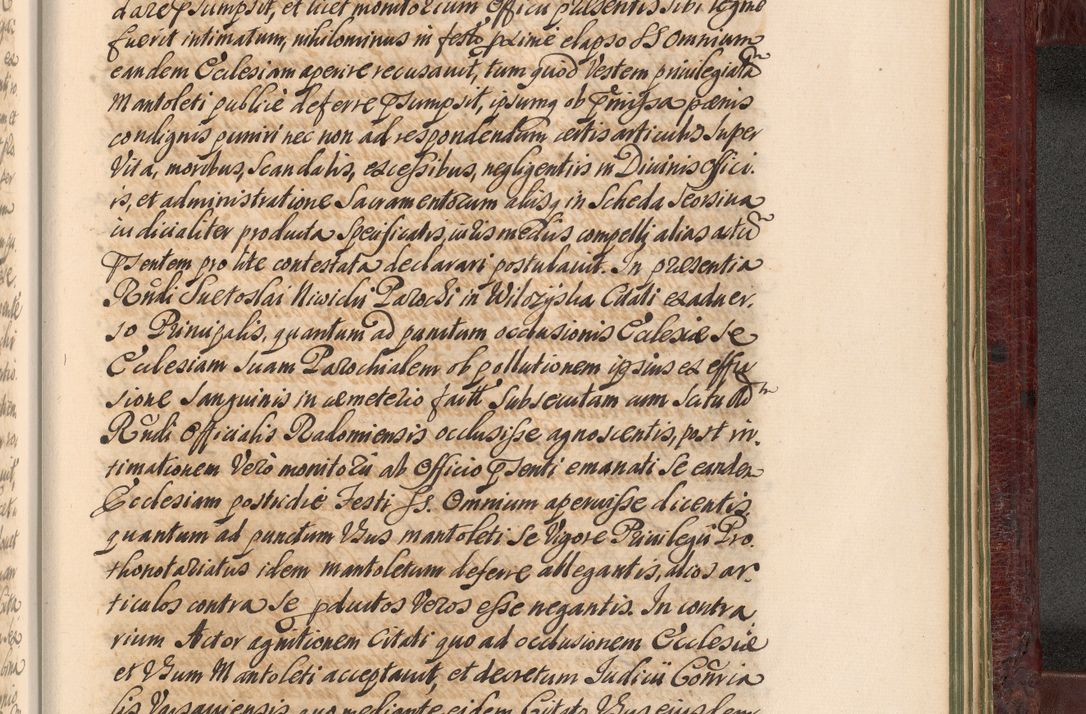 dare pſumpsit, et licet monitorium Officii præsentis sibi legme
fuerit intimatum, nihilominus in festo pxime elapso SS Omnium
eandem Ecclesiam aperire recusavit, tum quod Vestem privilegiatam
Mantoleti publicè deferre pſumpsit, ipsumq ob pmissa pœnis
condignis puniri nec non ad respondendum certis articulis super
Vita, moribus, Scandalis, excessibus, negligentiis in Divinis Offici.
is, et administratione Sacramentorum aliisq in Scheda Seorsiva
iudicialiter producta Specificatis, iuris mediis compelli alias actu
pſentem pro lite contestata declarari postulavit. In præsentia
Rndi Suetoslai Parochi in Citati ex adver.
so Principalis, quantum ad punctum occlusionis Ecclesiæ se
Ecclesiam suam Parochialem ob pollutionem ipsius ex effu
sione Sanguinis in cæmeterio factt Subsecutam cum Scitu Adm
Rndi Officialis Radomiensis occlusisse agnoscentis, post in.
timationem Verò monitorii ab Officio pſenti emanati Se eandem
Ecclesiam postridie Festi SS. Omnium aperuisse dicentis,
quantum ad punctum Usus mantoleti Se Vigore Privilegii Pro.
thonotariatus idem mantoletum deferre allegantis, alios ar.
ticulos contra Se pductos Veros esse negantis. In contra
rium Actor agnitionem Citati quo ad occlusionem Ecclesiæ
et Usum Mantoleti acceptavit, et decretum Iudicii
lis Varsaviensis quo mediante eidem Citato Usus eiusdem